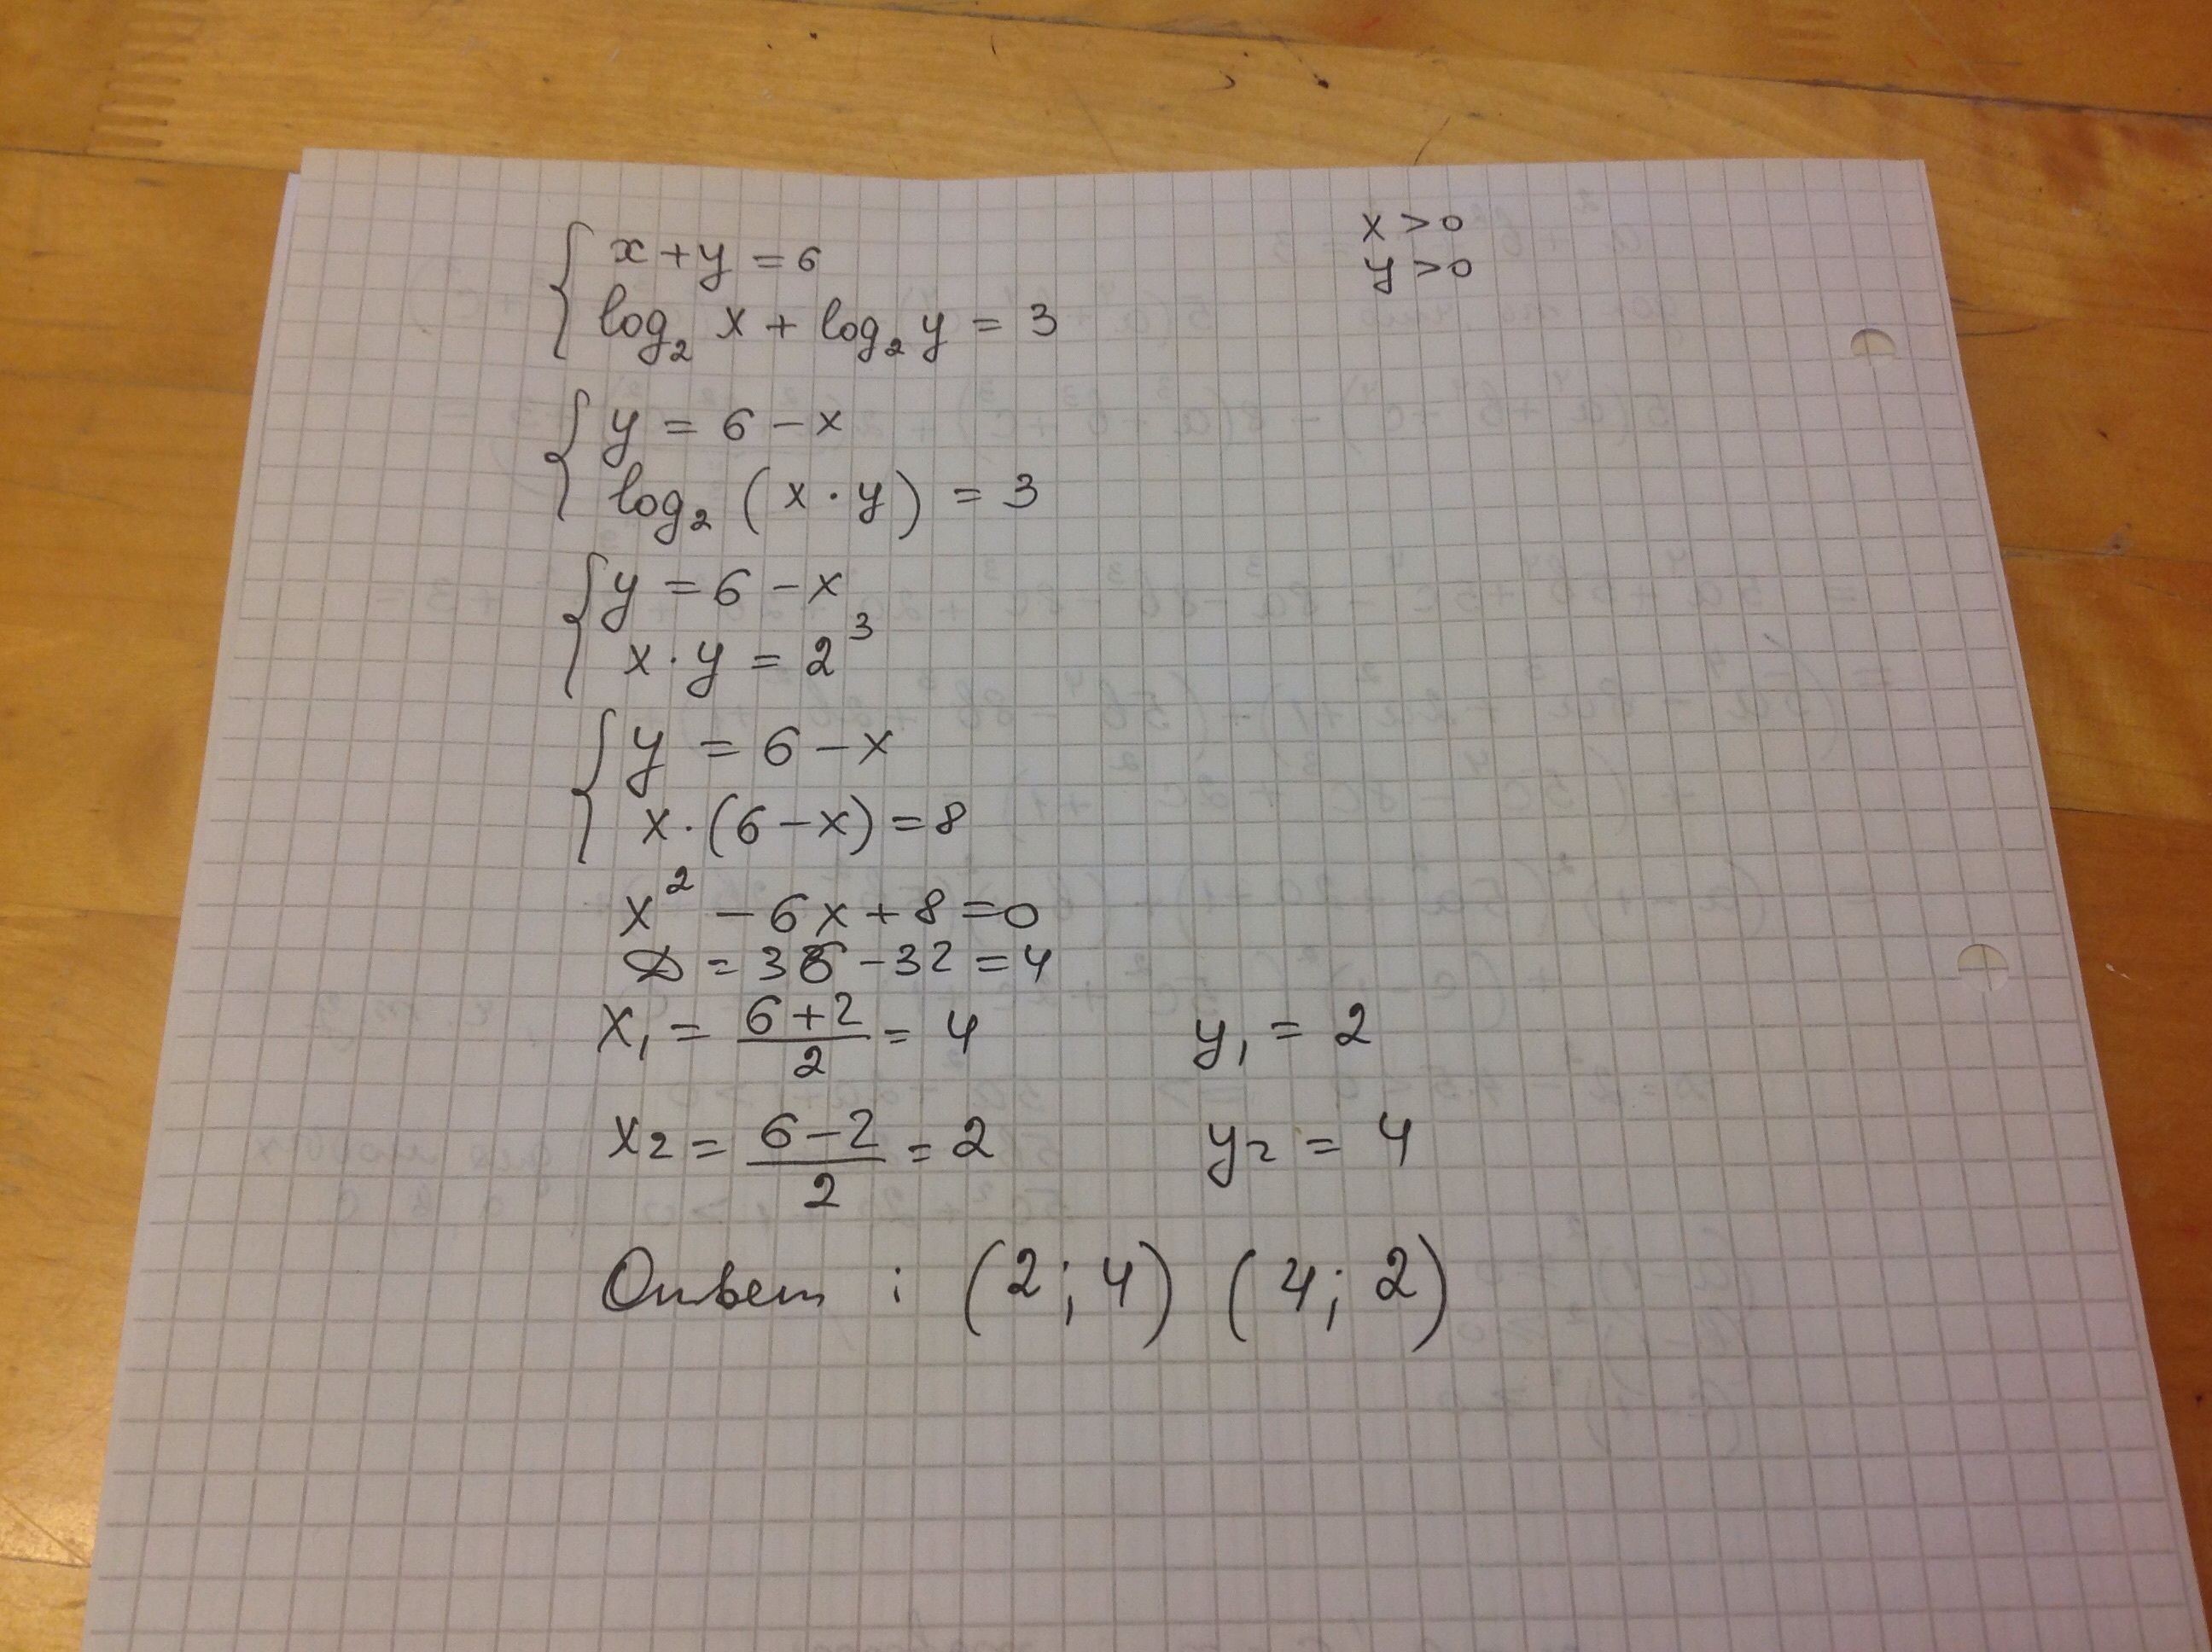 x + y = 6
x > 0
y > 0
log₂ x + log₂ y = 3
y = 6 - x
log₂ (x · y) = 3
y = 6 - x
x · y = 2³
y = 6 - x
x · (6 - x) = 8
x² - 6x + 8 = 0
D = 36 - 32 = 4
x₁ = (6 + 2)/2 = 4 y₁ = 2
x₂ = (6 - 2)/2 = 2 y₂ = 4
Ответ : (2; 4) (4; 2)